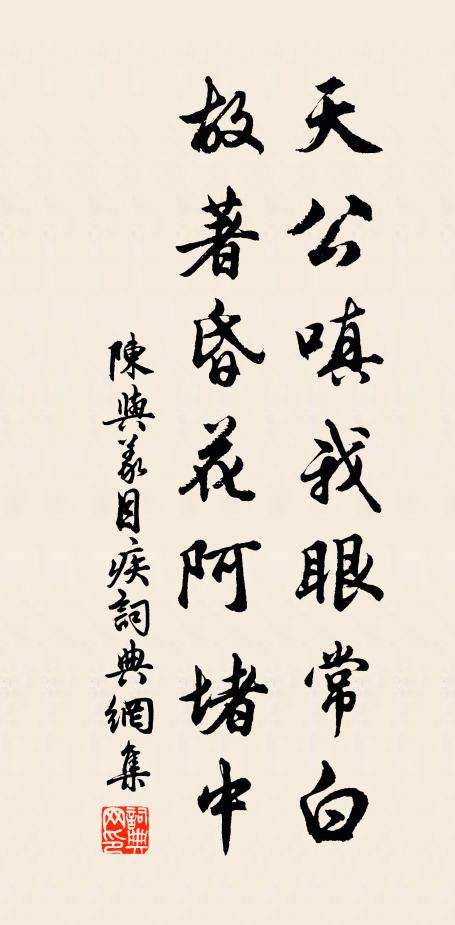 天公嗔我眼常白
故著昏花阿堵中
陳與義目疾詞典網集
詞典网印